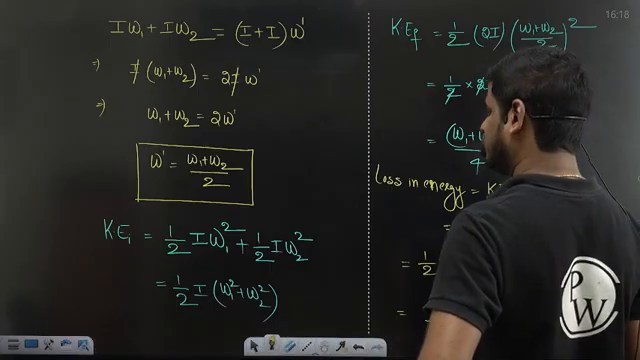 Iω₁ + Iω₂ = (I+I)ω'
⇒ I(ω₁+ω₂) = 2Iω'
⇒ ω₁+ω₂ = 2ω'
ω' = (ω₁+ω₂)/2
K·Eᵢ = 1/2 Iω₁² + 1/2 Iω₂²
= 1/2 I(ω₁²+ω₂²)
16:18
K·E_f = 1/2 (2I) ((ω₁+ω₂)/2)²
= 1/2 ×
= (ω₁+
4
Loss in energy =
=
= 1/2
=
PW